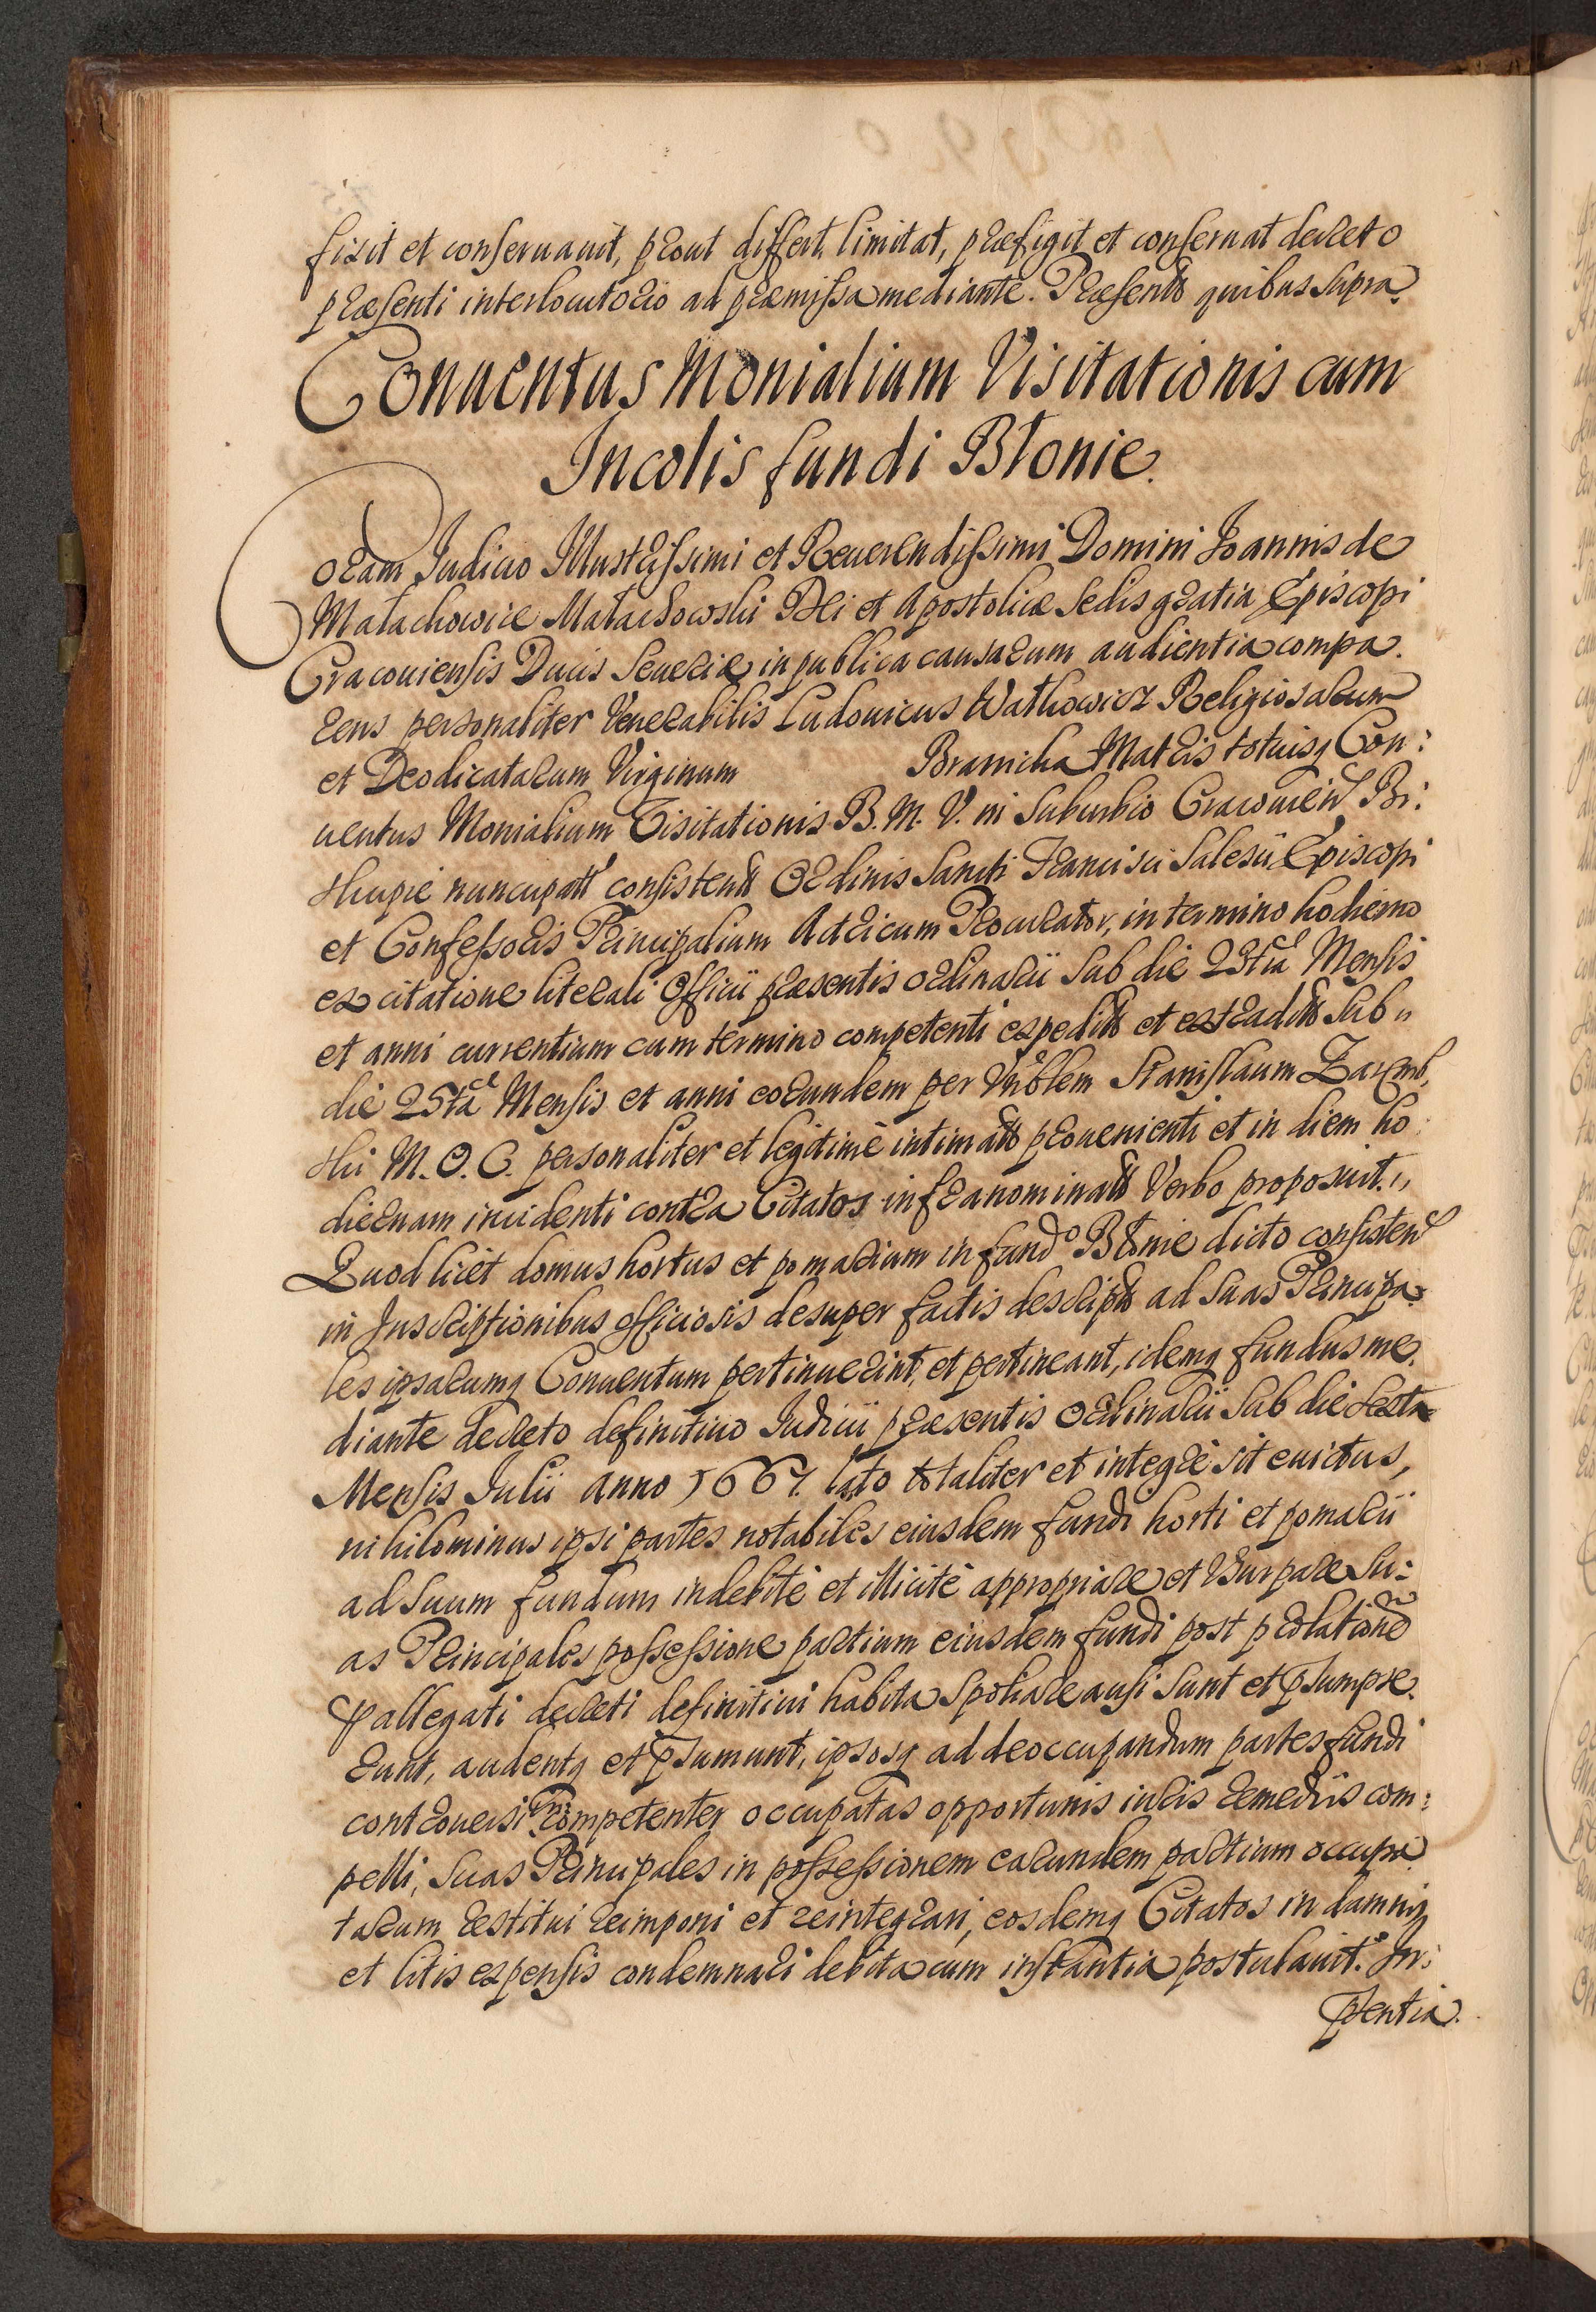 fixit et conseruauit, prout differt, limitat, præfigit et conseruat decreto
præsenti interlocutorio ad præmissa mediante. Præsentb quibus supra.
Conuentus Monialium Visitationis cum
Incolis fundi Błonie.
Coram Judicio Illustrissimi et Reuerendissimi Domini Joannis de
Małachowice Małachowski Dei et Apostolicæ Sedis gratia Episcopi
Cracouiensis Ducis Seueriæ in publica causarum audientia compa:
rens personaliter Venerabilis Ludouicus Wathowicz Religiosarum
et Deodicatarum Virginum Branicka Matris totiusq Con:
uentus Monialium Visitationis B. M. V. in Suburbio Cracouien Bi:
skupie nuncupatt consistentt Ordinis Sancti Francisci Salesii Episcopi
et Confessoris Principalium Actricum Procurator, in termino hodierno
ex citatione literali Officii præsentis ordinarii sub die 23tia Mensis
et anni currentium cum termino competenti expeditt et extraditt sub
die 25ta Mensis et anni eorundem per Vnblem Stanislaum Zaremb,
ski M. O. C. personaliter et legitimè intimatt prouenienti et in diem ho:
diernam incidenti contra Citatos infranominatt Verbo proposuit.
Quod licèt domus hortus et pomarium in fundo Błonie dicto consisten
in Inscriptionibus officiosis desuper factis descriptt ad suas Principa:
les ipsarumq Conuentum pertinuerint, et pertineant, idemq fundus me:
diante decreto definitiuo Iudicii præsentis Ordinarii sub die sexta
Mensis Julii anno 1667. lato totaliter et integrè sit euictus,
nihilominus ipsi partes notabiles eiusdem fundi horti et pomarii
ad suum fundum indebitè et illicitè appropriare et Vsurpare su:
as Principales possessione partium eiusdem fundi post prolationẽ
pallegati decreti definitiui habita spoliare ausi sunt et psumpse:
runt, audentq et psumunt, ipsosq ad deoccupandum partes fundi
controuersi incompetenter occupatas opportunis iuris remediis com:
pelli, suas Principales in possessionem earundem partium occupa:
tarum restitui reimponi et reintegrari, eosdemq Citatos in damnis
et litis expensis condemnari debita cum instantia postulauit. In:
psentia.